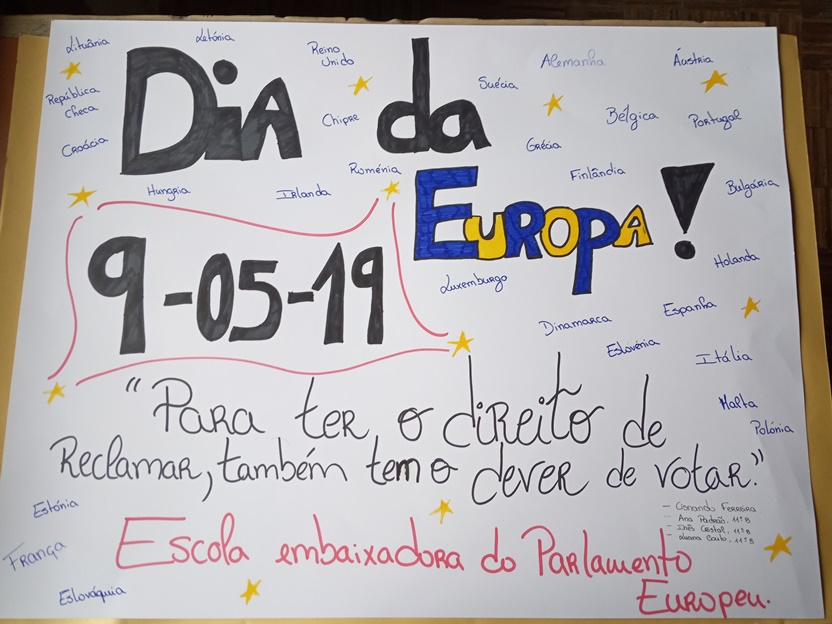 Lituânia
Letónia
Reino
Unido
Alemanha
Áustria
República
Checa
Suécia
Dia da
Chipre
Bélgica
Portugal
Croácia
Grécia
Roménia
Finlândia
Hungria
Irlanda
Bulgária
Europa!
9-05-19
Luxemburgo
Holanda
Dinamarca
Espanha
Eslovénia
Itália
Malta
Polónia
"Para ter o direito de
Reclamar, também tem o dever de votar."
Estónia
França
Eslováquia
Escola embaixadora do Parlamento
Europeu.
- Ferreira
- Ana Padrão, 11ºB
- Inês Cristal, 11ºB
- Luana Couto, 11ºB